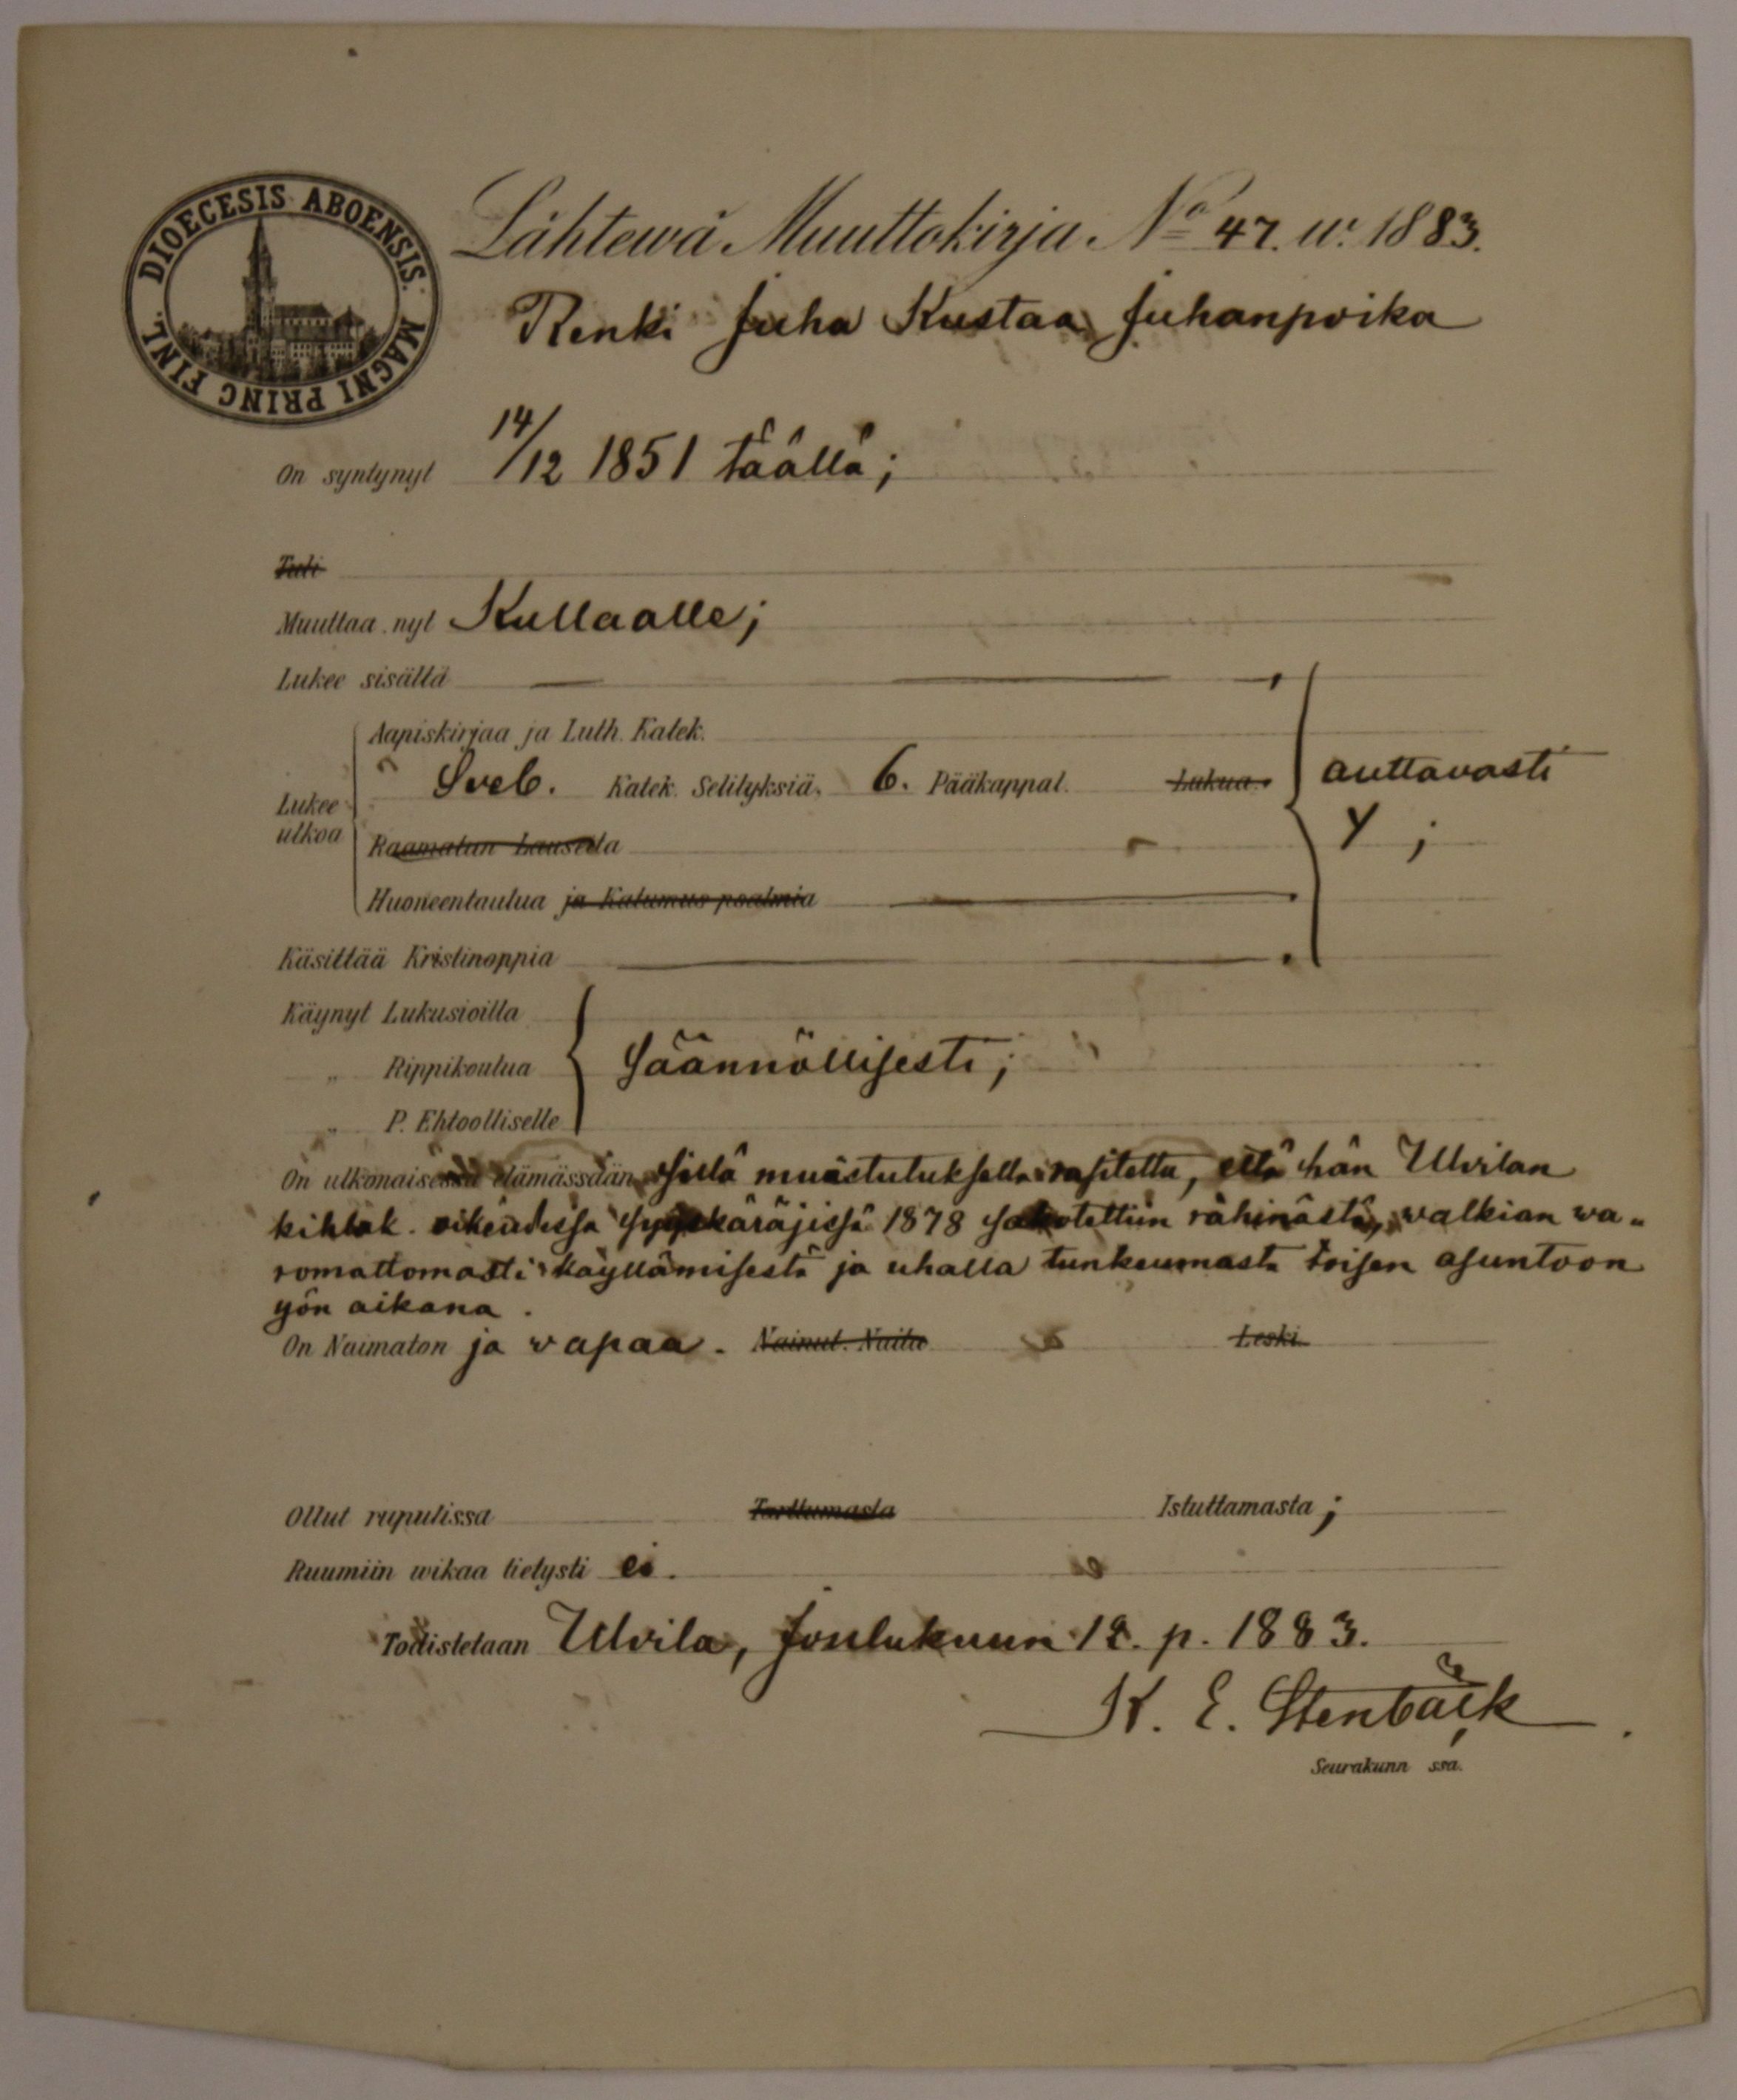 DIOECESIS ABOENSIS. MAGNI PRINC FINL.
Lähtewä Muuttokirja No 47. w. 1883.
Renki Juha Kustaa Juhanpoika
On syntynyt 14/12 1851 täällä;
Tuli
Muuttaa nyt Kullaalle;
Lukee sisältä
Aapiskirjaa ja Luth. Katek.
Lukee ulkoa
Sveb. Katek. Selityksiä, 6. Pääkappal. Lukua. auttavasti
Raamatun Lauseita
Huoneentaulua ja Katumus psalmia
Käsittää Kristinoppia
Käynyt Lukusioilla
" Rippikoulua säännöllisesti;
" P. Ehtoolliselle
On ulkonaisessa elämässään sillä muistutuksella rasitettu, että hän Ulvilan
kihlak. oikeudessa syyskäräjissä 1878 sakotettiin rähinästä, walkian wa-
romattomasti käyttämisestä ja uhalla tunkeumasta toisen asuntoon
yön aikana.
On Naimaton ja vapaa. Nainut. Naitu Leski.
Ollut rupulissa Tarttumasta Istuttamasta;
Ruumiin wikaa tietysti ei.
Todistetaan Ulvila, Joulukuun 12. p. 1883.
K. E. Stenbäck
Seurakunn ssa.